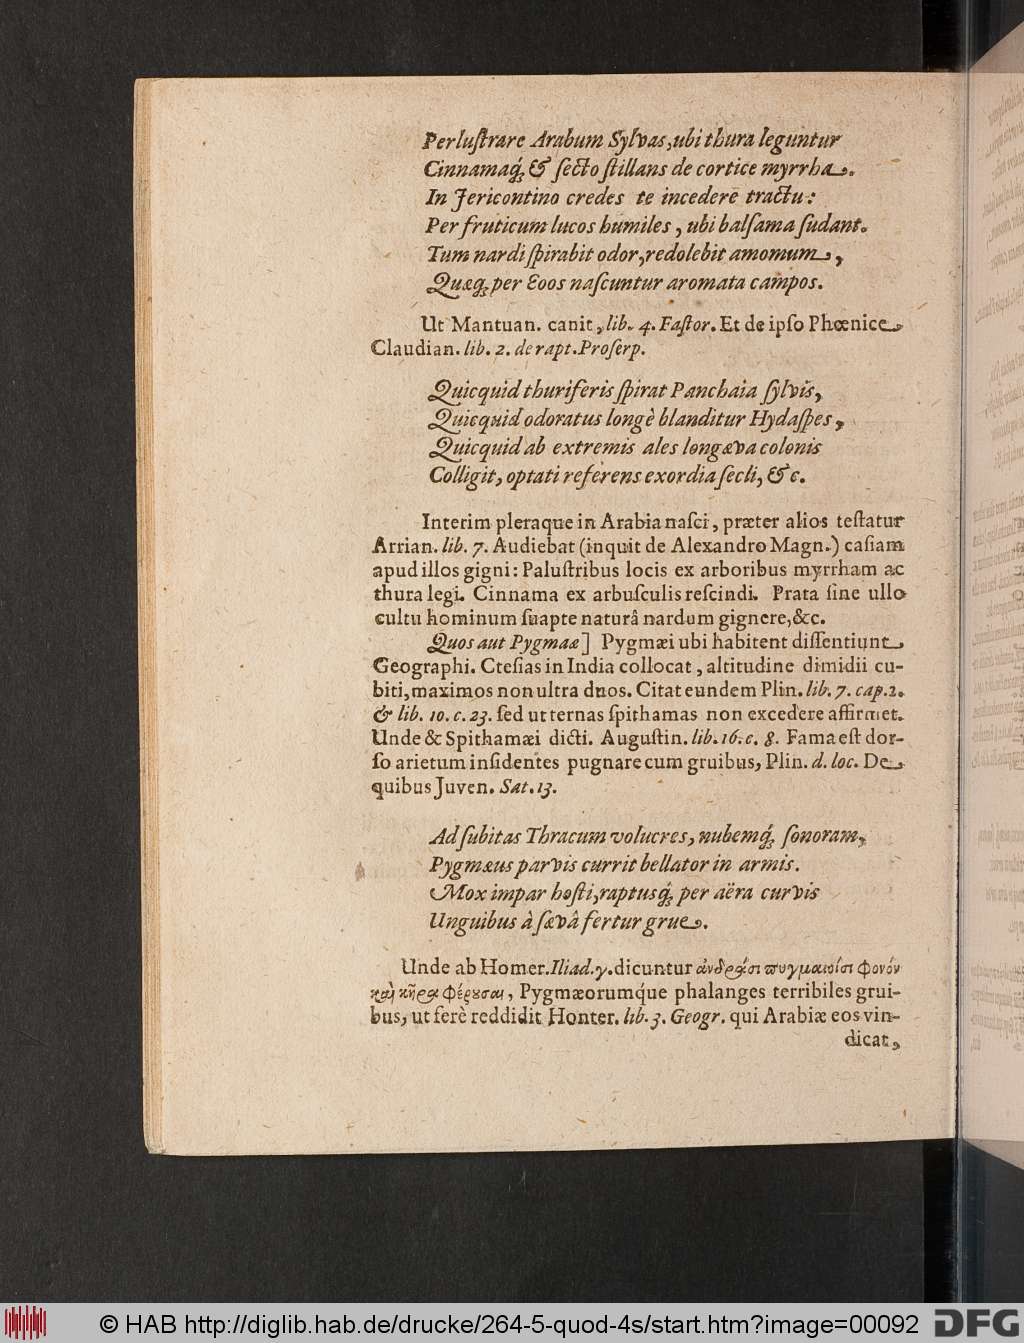 Perluſtrare Arabum Sylvas, ubi thura leguntur
Cinnamaq́; & ſecto ſtillans de cortice myrrha.
In Jericontino credes te incedere tractu:
Per fruticum lucos humiles, ubi balſama ſudant.
Tum nardi ſpirabit odor, redolebit amomum,
Quæq́; per Eoos naſcuntur aromata campos.
Ut Mantuan. canit, lib. 4. Faſtor. Et de ipſo Phœnice
Claudian. lib. 2. de rapt. Proſerp.
Quicquid thuriferis ſpirat Panchaia ſylvis,
Quicquid odoratus longè blanditur Hydaſpes,
Quicquid ab extremis ales longæva colonis
Colligit, optati referens exordia ſecli, &c.
Interim pleraque in Arabia naſci, præter alios teſtatur
Arrian. lib. 7. Audiebat (inquit de Alexandro Magn.) caſiam
apud illos gigni: Paluſtribus locis ex arboribus myrrham ac
thura legi. Cinnama ex arbuſculis reſcindi. Prata ſine ullo
cultu hominum ſuapte naturâ nardum gignere, &c.
Quos aut Pygmaæ] Pygmæi ubi habitent diſſentiunt
Geographi. Cteſias in India collocat, altitudine dimidii cu-
biti, maximos non ultra duos. Citat eundem Plin. lib. 7. cap. 2.
& lib. 10. c. 23. ſed ut ternas ſpithamas non excedere affirmet.
Unde & Spithamæi dicti. Auguſtin. lib. 16. c. 8. Fama eſt dor-
ſo arietum inſidentes pugnare cum gruibus, Plin. d. loc. De
quibus Juven. Sat. 13.
Ad ſubitas Thracum volucres, nubemq́; ſonoram,
Pygmæus parvis currit bellator in armis.
Mox impar hoſti, raptusq́; per aëra curvis
Unguibus à ſævâ fertur grue.
Unde ab Homer. Iliad. γ. dicuntur ἀνδράσι πυγμαίοισι φονόν
καὶ κῆρα φέρουσαι, Pygmæorumq́ue phalanges terribiles grui-
bus, ut ferè reddidit Honter. lib. 3. Geogr. qui Arabiæ eos vin-
dicat,
© HAB http://diglib.hab.de/drucke/264-5-quod-4s/start.htm?image=00092
DFG